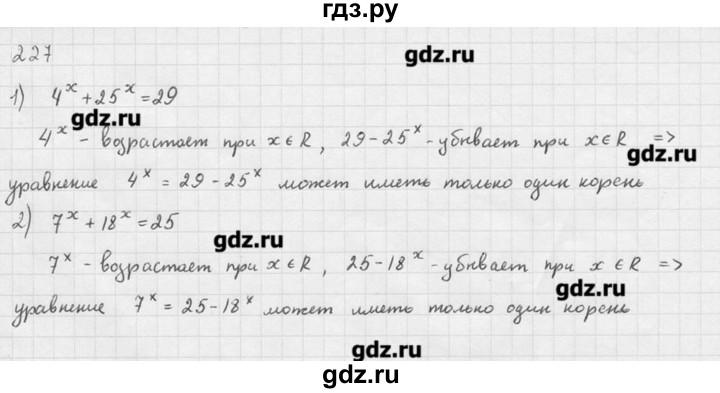 гдз.ру
227
gdz.ru
1) 4ˣ + 25ˣ = 29
gdz.ru
4ˣ - возрастает при x ∈ R, 29 - 25ˣ - убывает при x ∈ R =>
gdz.ru
уравнение 4ˣ = 29 - 25ˣ может иметь только один корень
2) 7ˣ + 18ˣ = 25
gdz.ru
7ˣ - возрастает при x ∈ R, 25 - 18ˣ - убывает при x ∈ R =>
gdz.ru
уравнение 7ˣ = 25 - 18ˣ может иметь только один корень
gdz.ru
gdz.ru